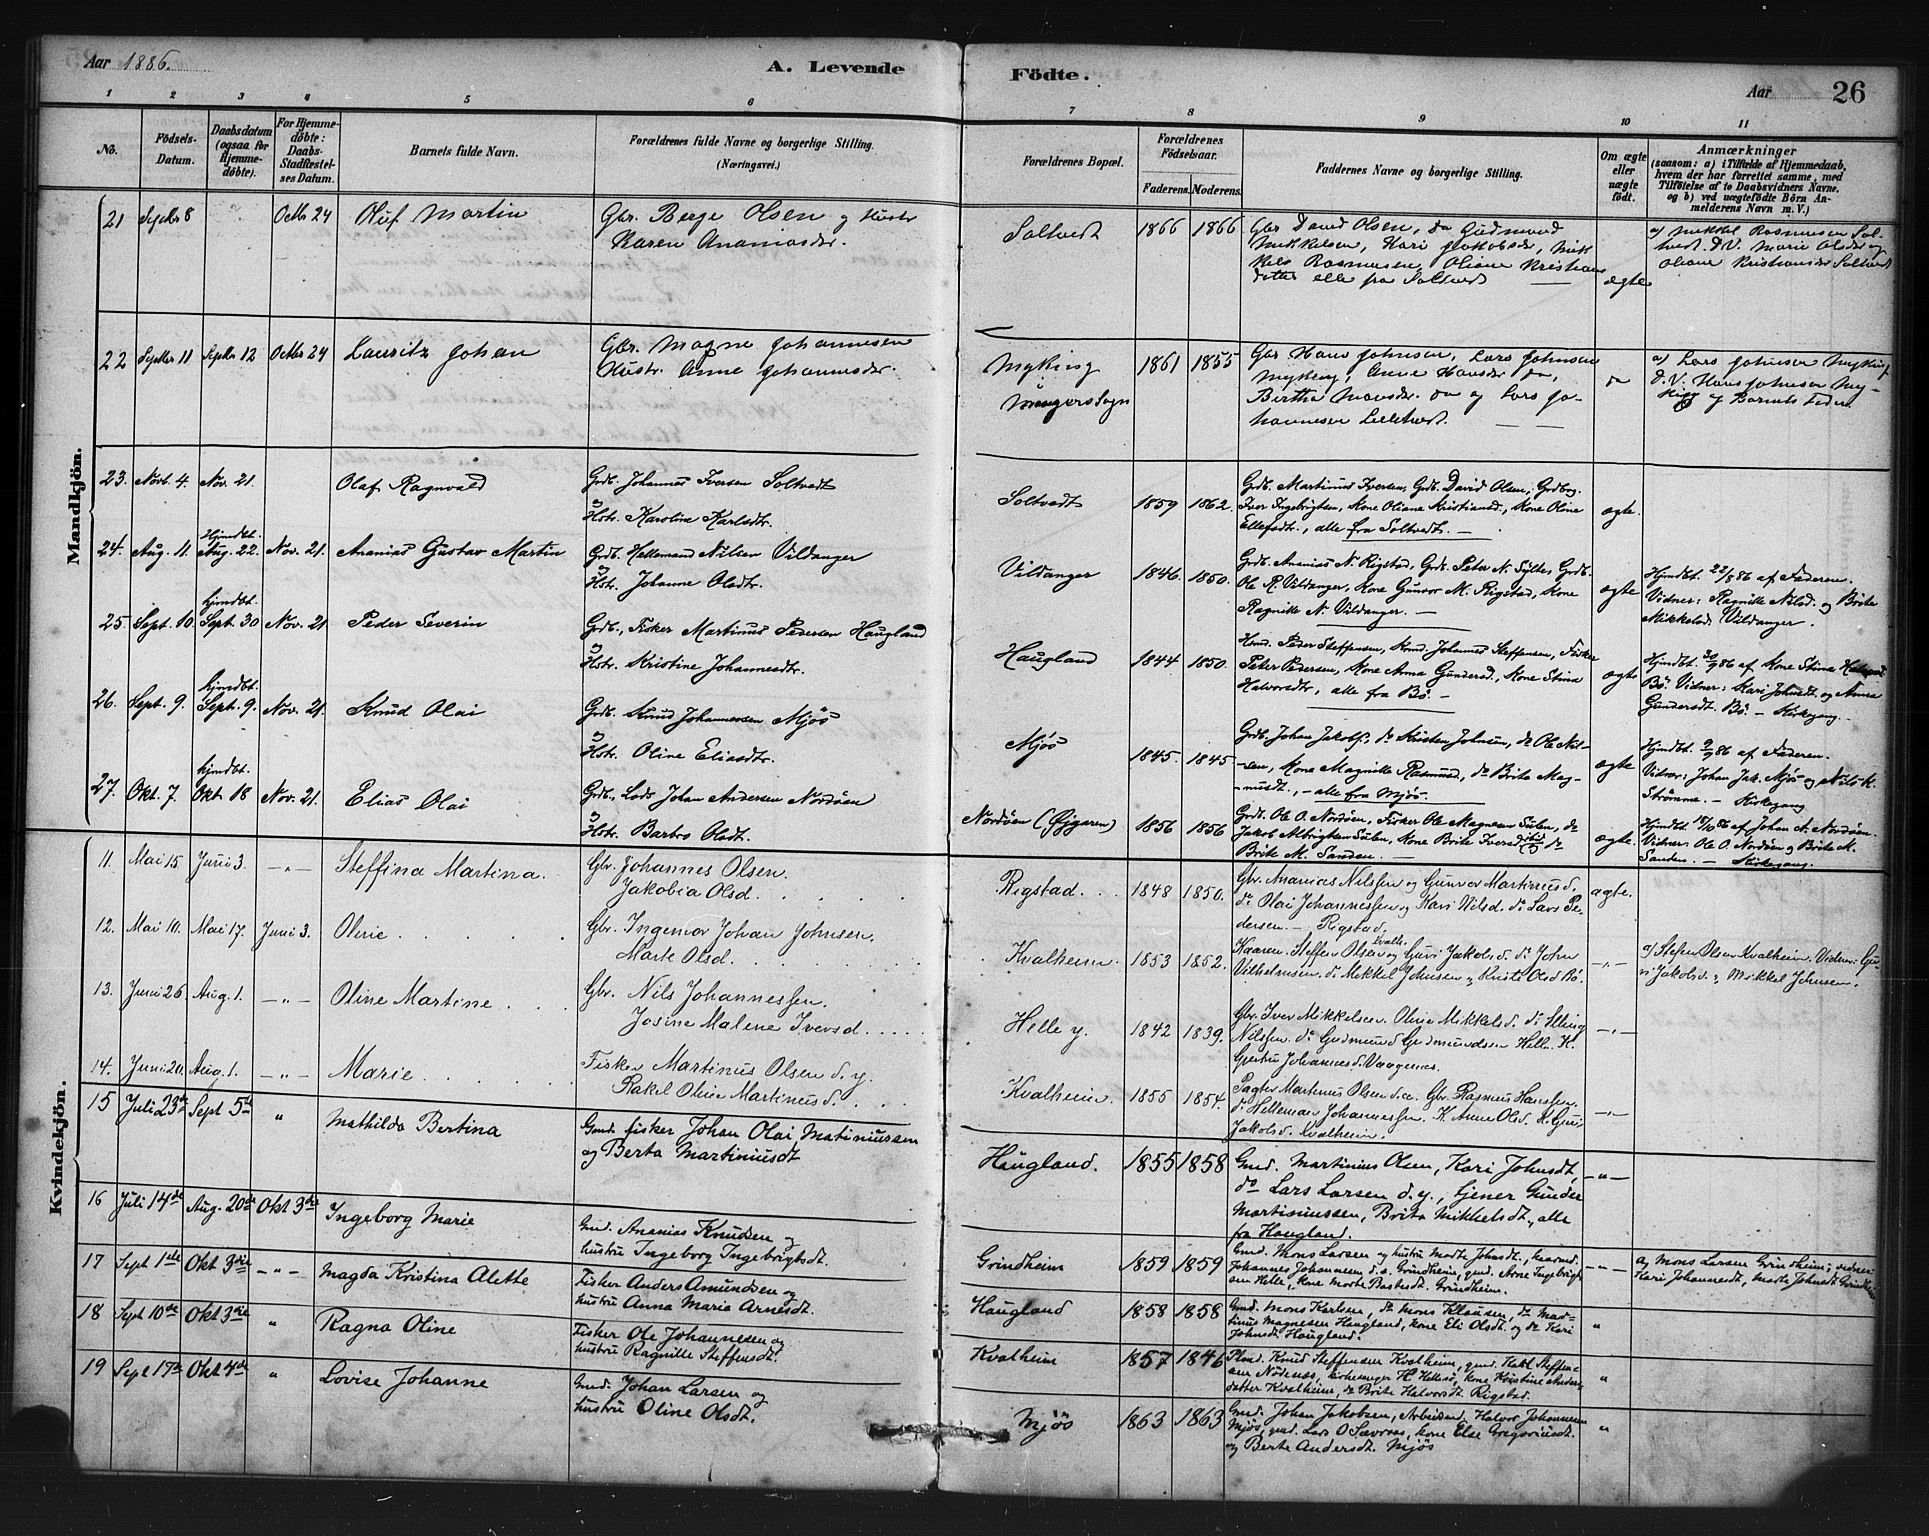 Aar 1886.
A. Levende Födte.
Aar 26
1 2 3 4 5 6 7 8 9 10 11
No.
Födsels-Datum.
Daabsdatum (ogsaa for Hjemme-döbte).
For Hjemme-döbte: Daabs-Stadfæstel-ses Datum.
Barnets fulde Navn.
Forældrenes fulde Navne og borgerlige Stilling. (Næringsvei.)
Forældrenes Bopæl.
Forældrenes Födselsaar.
Faderens. Moderens.
Faddernes Navne og borgerlige Stilling.
Om ægte eller uægte födt.
Anmærkninger
(saasom: a) i Tilfælde af Hjemmedaab,
hvem der har forrettet samme, med
Tilföielse af to Daabsvidners Navne.
og b) ved uægtefödte Börn An-
melderens Navn m. V.)
Mandkjön.
21 Septbr 8 Octbr 24 Oluf Martin
Gbr. Berge Olsen og Hustr
Karen Ananiasdr.
Soltvedt 1866 1866
Gbr David Olsen, do Gudmund
Mikkelsen, Kari Jakobsdr, Mik
kel Rasmusen, Oliane Kristians
datter alle fra Soltvedt
ægte
a) Mikkel Rasmusen Sol-
tvedt. D.V. Marie Olsdr og
Oliane Kristiansdr Soltvedt
22 Septbr 11 Septbr 12 Octbr 24 Lauritz Johan
Gbr. Magne Johannesen
Hustr. Anne Johannesdr.
Myking 1861 1855
Gbr Hans Johnsen, Lars Johnsen
Myking, Anne Hansdr do,
Bertha Monsdr. do og Lars Jo-
hannesen Lilletvedt.
do
a) Lars Johnsen Myking
D.V. Hans Johnsen My-
king og Barnets Fader.
23. Novb. 4. Nov. 21. Olaf Ragnvald
Grdb. Johannes Iversen Soltvedt
&
Hstr. Karoline Karlsdtr.
Soltvedt 1859 1862.
Grdb. Martinus Iversen, Grdb. David Olsen, Grdbog.
Iver Ingebrigtsen, Kone Oliane Kristiansd., Kone Oline
Ellefsdtr., alle fra Soltvedt. —
ægte.
24. Aug. 11. Hjmdbt. Aug. 22. Nov. 21. Ananias Gustav Martin
Grdb. Hellemand Nilsen Vildanger
&
Hstr. Johanne Olsdtr.
Vildanger 1846. 1850.
Grdb. Ananias N. Rigstad, Grdb. Peter N. Sylte, Grdb.
Ole R. Vildanger, Kone Gunvor M. Rigstad, Kone
Ragnille N. Vildanger. —
ægte
Hjmdbt. 22/8 86 af Faderen.
Vidner: Ragnille Nilsd. og Brite
Mikkelsd Vildanger.
25. Sept. 10 hjmdbt. Sept. 30 Nov. 21 Peder Severin
Grdb., Fisker Martinus Pedersen Haugland
&
Hstr. Kristine Johannesdtr.
Haugland 1844 1850.
Hsmd. Peder Steffensen, Hsmd. Johannes Steffensen, Fisker
Peter Pedersen, Kone Anna Gundersd., Kone Stina
Halvorsdtr, alle fra Bö. —
ægte
Hjmdbt. 30/9 86 af Kone Stina
Bö. Vidner: Kari Johnsdt. og Anna
Gundersdt. Bö. — Kirkegang. —
26. Sept. 9. hjmdbt. Sept. 9. Nov. 21. Knud Olai
Grdb. Knud Johannessen Mjös
&
Hstr. Oline Eliasdtr.
Mjös 1845. 1845
Grdb. Johan Jakobs., do Kristen Johnsen, do Ole Nil-
sen, Kone Magnille Rasmusd, do Brite Mag-
nusdt., — alle fra Mjös.
ægte
Hjmdbt. 9/9 86 af Faderen.
Vidner: Johan Jak. Mjös og Nils K.
Strömme. — Kirkegang
27. Okt. 7. hjmdbt. Okt 18 Nov. 21. Elias Olai
Grdb., Lods Johan Andersen Nordöen
&
Hstr. Barbro Olsdt.
Nordöen (Øjgaren) 1856 1856
Grdb. Ole O. Nordöen, Fisker Ole Magnesen Sulen, do
Jakob Albrigtsen Sulen, Kone Brite Iversd ibid og do
Brite M. Sanden. —
ægte.
Hjmdbt. 18/10 86 af Johan A. Nordöen.
Vidner: Ole O. Nordöen og Brite M.
Sanden. — Kirkegang.
Kvindekjön.
11. Mai 15 Juni 3. —"— Steffina Martina.
Gbr. Johannes Olsen.
Jakobia Olsd.
Rigstad. 1848 1850.
Gbr. Ananias Nilssen og Gunvor Martinusd.
do Olai Johannessen og Kari Nilsd. do Lars Pe-
dersen. — Rigstad.
ægte.
12. Mai 10. Mai 17. Juni 3. Oline
Gbr. Ingemor Johan Johnsen.
Marte Olsd.
Kvalheim. 1853 1852.
Kaaren. Steffen Olsen Kvalh. og Guri Jakobsd. do John
Vilhelmsen. do Mikkel Johnsen og Kriste Olsd Bö.
—"—
a) Stefen Olsen Kvalheim. Vidner: Gu-
ri Jakobsd. og Mikkel Johnsen.
13. Juni 26 Aug. 1. —"— Oline Martine
Gbr. Nils Johannessen.
Josine Malene Iversd.
Helle y. 1842 1839.
Gbr. Iver Mikkelsen. Oline Mikkelsd. do Elling
Nilssen. do Gudmund Gudmundsen Helle. K.
Gjertru Johannesd. Vaagenes.
—"—
14. Juni 20 Aug. 1. —"— Marie
Fisker Martinus Olsen d. y.
Rakel Oline Martinusd.
Kvalheim. 1855 1854.
Pagter Martinus Olsen d.æ. Gbr. Rasmus Hanssen.
do Helleman Johannessen. K. Anne Olsd. K. Guri
Jakobsd. Kvalheim.
—"—
15 Juli 23de Sept 5te " Mathilda Bertina
Gmd. fisker Johan Olai Matiniussen
og Berta Martiniusdt
Haugland. 1855 1858
Gmd. Martinius Olsen, Kari Johnsdt,
do Lars Larsen d.y., tjener Gunder
Martiniussen, Brita Mikkelsdt., alle
fra Haugland.
—"—
16 Juli 14de Aug. 20de Okt 3die Ingeborg Marie
Gmd. Ananias Knudsen og
hustru Ingeborg Ingebrigtsdt.
Grindheim 1859 1859
Gmd. Mons Larsen og hustru Marte Johnsdt., kaarmd.
Johannes Johannesen d.æ. Grindheim, gmd. Arne Ingebrigt-
sen Helle, kone Marte Bastesdt. Grindheim.
—"—
a, Mons Larsen Grindheim; vidner:
Kari Johannesdt, Marta Johnsdt Grindheim
17 Sept 1ste Okt 3die —"— Magda Kristina Alette
Fisker Anders Amundsen og
hustru Anna Maria Arnesdt.
Haugland 1858 1858
Gmd. Mons Karlsen, do Mons Klausen, do Mar-
tinus Magnesen Haugland, kone Eli Olsdt. og do Kari
Johnsdt. Haugland.
"
18 Sept 10de Okt 3die " Ragna Oline
Fisker Ole Johannesen og
hustru Ragnille Steffensdt.
Kvalheim 1857 1846
Plmd. Knud Steffensen Kvalheim, gmd. Karl Steffen-
sen Nödenes, kirkesanger H. Hellesö, kone Kristine Anders
datter Kvalheim, do Brite Halvorsdt. Rigstad.
"
19 Sept 17de Okt 4de " Lovise Johanne
Gmd. Johan Larsen og
hustru Oline Olsdt.
Mjös 1863 1863
Gmd. Johan Jakobsen, Arbeidsmd. Halvor Johannesen
Mjös, gmd. Lars O Sævraas, kone Else Gregoriusdt.
og Berte Andersdt. Mjös
"